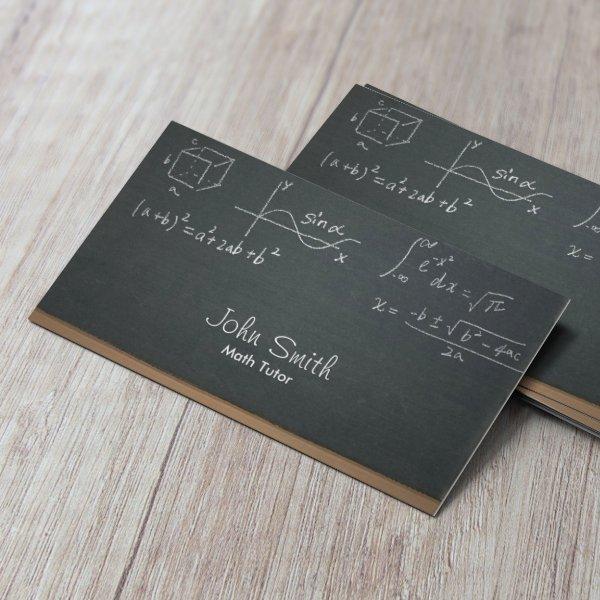 c
b
a
(a+b)² = a²+2ab+b²
y
sin α
x
∫_{-∞}^{∞} e^{-x²} dx = √π
x = (-b ± √(b² - 4ac)) / 2a
John Smith
Math Tutor
c
b
a
(a+b)² = a²+2ab+b²
y
sin α
x
∫
-∞
x =